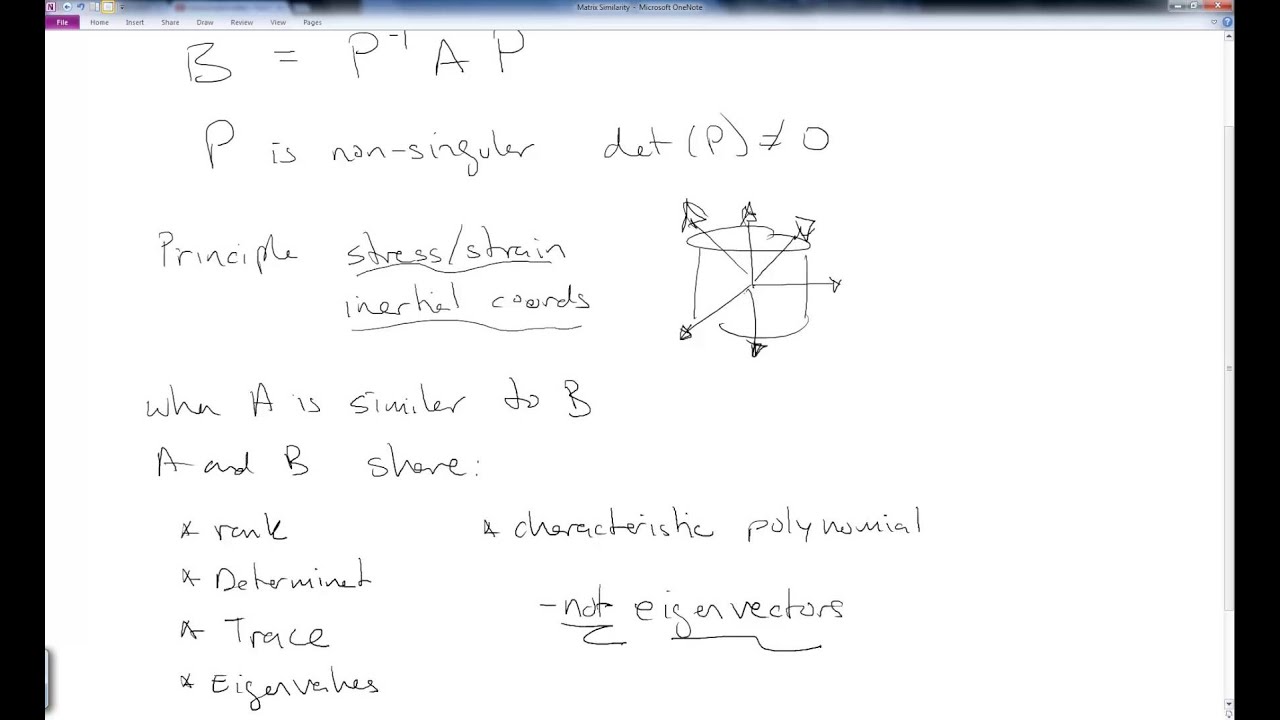 Matrix Similarity - Microsoft OneNote
File Home Insert Share Draw Review View Pages
B = P⁻¹ A P
P is non-singuler det (P) ≠ 0
Principle stress/strain
inertial coords
when A is similer to B
A and B share:
* rank
* characteristic polynomial
* Determinet
- not eigenvectors
* Trace
* Eigenvalues